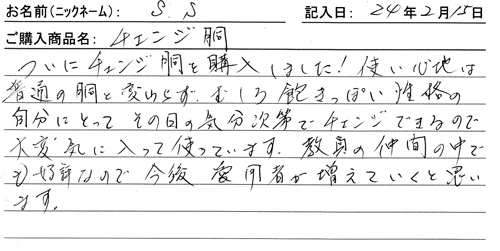 お名前(ニックネーム): S.S 記入日: 24年2月15日
ご購入商品名: チェンジ胴
ついにチェンジ胴を購入しました!使い心地は
普通の胴と変わらず、むしろ飽きっぽい性格の
自分にとってその日の気分次第でチェンジできるので
大変気に入って使っています。教員の仲間の中で
も好評なので今後愛用者が増えていくと思い
ます。